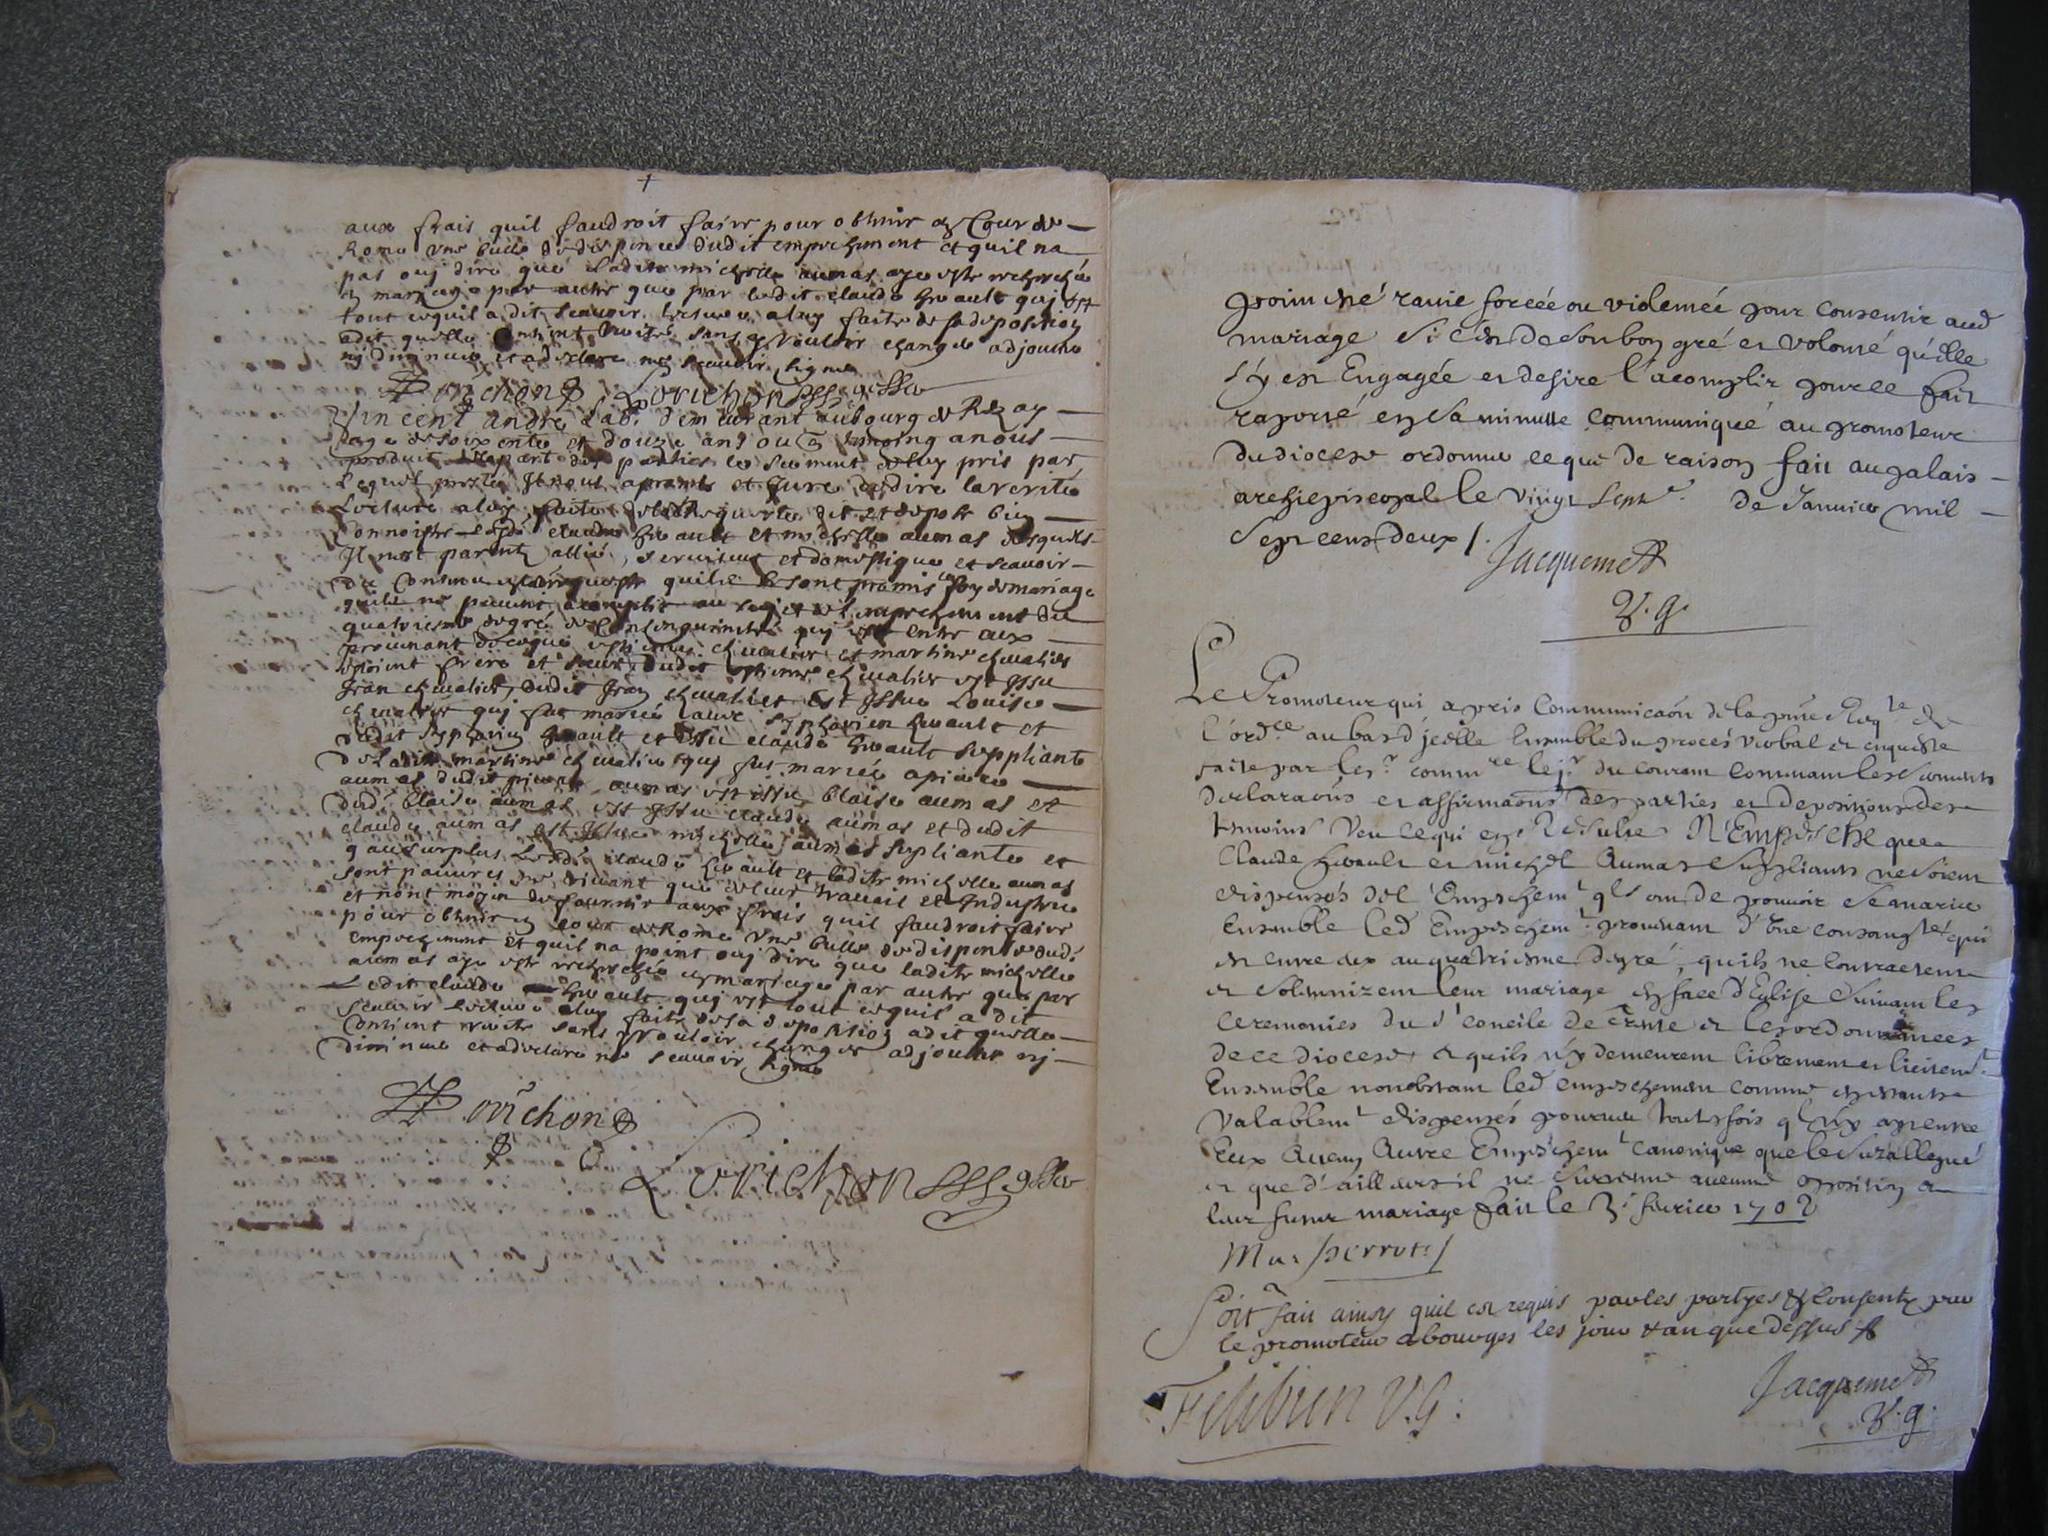 aux frais quil faudroit faire pour obtenir en Cour de
Rome une bulle de dispence dudit empeschement et quil na
pas ouj dire que ladite michelle aumas aye este recherchée
en mariage par autre que par ledit claude herault quj est
tout ce quil a dit scauoir lecture a luy faite de sa deposition
a dit quelle contient verité sans y vouloir changer adjouter
nj diminuer et a declaré ne scauoir signer
Ponchon Lorichon
Vincent andré lab. demeurant au bourg de Rezay
aage de soixente et douze ans ou en temoing a nous
produit de la part des parties le serment de luy pris par
lequel moyen Il nous a promis et Juré de dire la verité
Lecture a luy faite de lad Requeste dit et depose bien
connoistre lesd. claude herault et michelle aumas desquels
Il nest parent, allié, seruiteur et domestique et scauoir
du Contenu en la requeste quilz se sont promis foy de mariage
quils ne peuuent acomplir au sujet de l'empeschement du
quatriesme degré de Consanguinité quj est entre eux
prouenant de ce que estienne cheualier et martine cheualier
estoient frere et sœur dudit estienne cheualier est Issu
Jean cheualier, dudit Jean cheuallier est Issue Louise
cheualier quj fut mariée auec Syphorien herault et
dudit Syphorien herault est Issu claude herault suppliante
de ladite martine cheualier quj fut mariée a pierre
aumas dudit pierre aumas est issu blaise aumas et
dud. blaise aumas est Issu claude aumas et dudit
claude aumas est Issue michelle aumas supliante et
qau surplus lesd. claude herault et ladite michelle aumas
sont pauures ne viuant que de leur trauail et Industrie
et nont moyen de fournir aux frais quil faudroit faire
pour obtenir en cour de Rome une bulle de dispense dud.
empeschement et quil na point ouj dire que ladite michelle
aumas aye este recherchée en mariage par autre que par
Ledit claude herault quj est tout ce quil a dit
scauoir lecture a luy faite de sa deposition a dit quelle
Contient verité sans y vouloir changer adjouter nj
diminuer et a declaré ne scauoir signer
Ponchon
Lorichon
point esté rauie forcée ou violentée pour consentir aud
mariage si c'est de son bon gré et volonté qu'elle
s'y est Engagée et desire l'acomplir pour ce fait
raporté en la minutte communiqué au promoteur
du diocese ordonner ce que de raison fait au palais
archiepiscopal le vingt sept.e de Januier mil
Sept cens deux /.
Jacquemet
V.g.
Le Promoteur qui a pris Communicaōn de la pnte Reqte de
l'ordce au bas d'jcelle Ensemble du procés verbal et enqueste
faite par le sr commre le jr du courant Contenant les Serments
declaraōns et affirmaōns des parties et depositions des
temoins Veu ce qui en Resulte N'Empesche que
Claude herault et michel Aumas Suppliants ne soient
dispensés de l'Empeschemt qls ont de pouuoir se marier
Ensemble led Empeschemt prouenant d'Une consangté qui
est entre eux au quatriesme degré, quils ne Contractent
et Solemnizent leur mariage en face d'Eglise Suiuant les
Ceremonies du st Concile de Trente et les ordonnances
de ce diocese et quils n'y demeurent librement et licitemt
Ensemble nonobstant led empeschement comme en estants
Valablemt dispensés pourueu toutesfois ql n'y ayt entre
Eux Aucun Autre Empeschemt Canonique que le Susallegué
et que d'ailleurs il ne suruienne aucunne oposition a
leur futur mariage fait le 3e féurier 1702
Perrot
Soit fait ainsy quil est requis par les partyes & consenty par
le promoteur a bourges les jour & an que dessus
Jacquemet
V.g.
Felibien V.G.